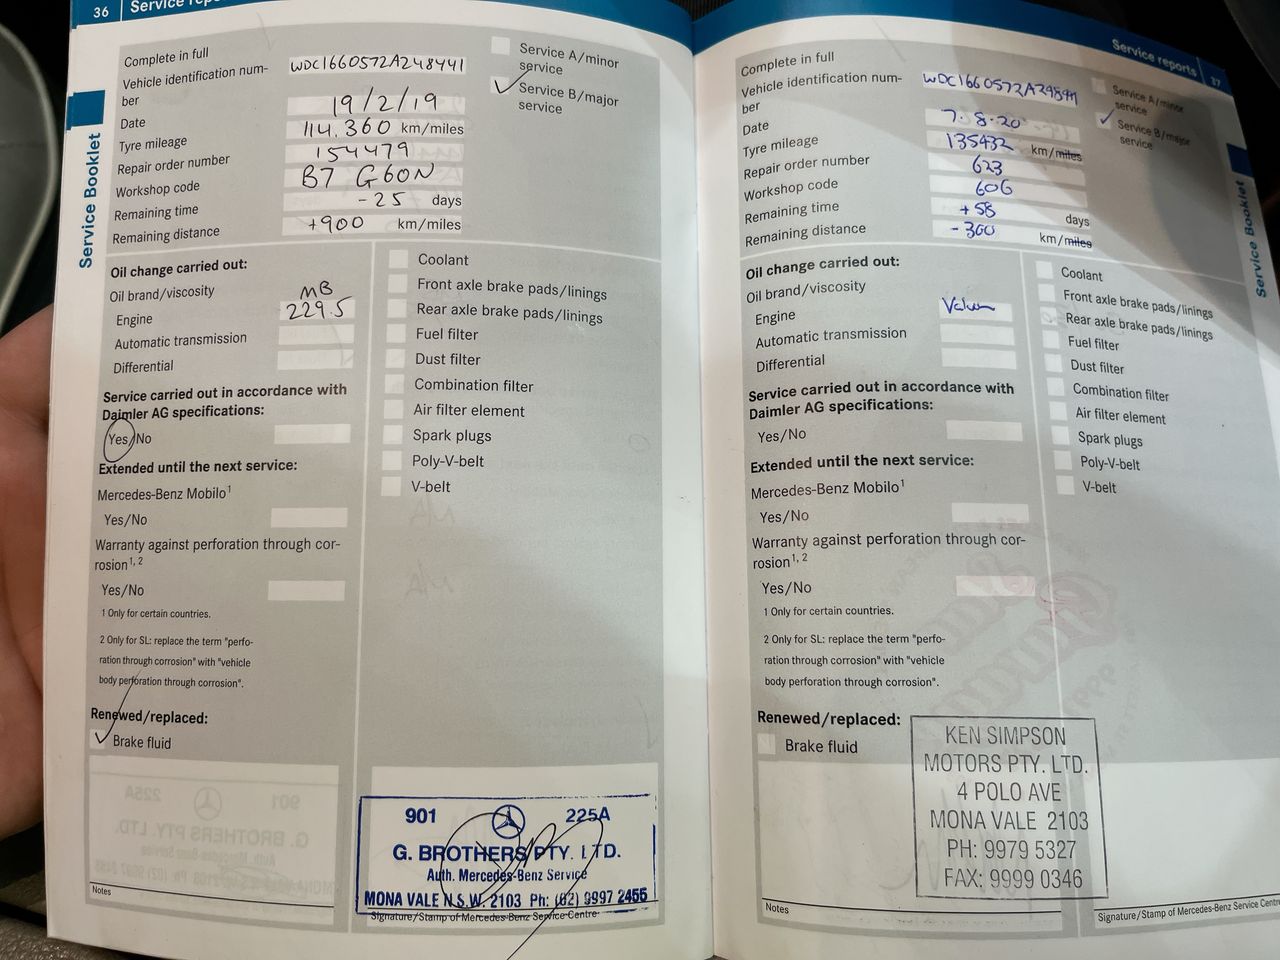 36
Complete in full
Vehicle identification num-
ber
WDC1660572A248441
Date 19/2/19
Tyre mileage 114,360 km/miles
Repair order number 154479
Workshop code B7 G60N
Remaining time -25 days
Remaining distance +900 km/miles
Service A/minor
service
Service B/major
service
Service Booklet
Oil change carried out:
Oil brand/viscosity
MB
Engine 229.5
Automatic transmission
Differential
Service carried out in accordance with
Daimler AG specifications:
Yes/No
Extended until the next service:
Mercedes-Benz Mobilo1
Yes/No
Warranty against perforation through cor-
rosion1, 2
Yes/No
1 Only for certain countries.
2 Only for SL: replace the term "perfo-
ration through corrosion" with "vehicle
body perforation through corrosion".
Renewed/replaced:
Brake fluid
Coolant
Front axle brake pads/linings
Rear axle brake pads/linings
Fuel filter
Dust filter
Combination filter
Air filter element
Spark plugs
Poly-V-belt
V-belt
Notes
901 225A
G. BROTHERS PTY. LTD.
Auth. Mercedes-Benz Service
MONA VALE N.S.W. 2103 Ph: (02) 9997 2455
Signature/Stamp of Mercedes-Benz Service Centre
Service reports 37
Complete in full
Vehicle identification num-
ber
Date 7.8.20
Tyre mileage 135432 km/miles
Repair order number 623
Workshop code 606
Remaining time +58 days
Remaining distance -300 km/miles
Service A/minor
service
Service B/major
service
Service Booklet
Oil change carried out:
Oil brand/viscosity
Engine
Automatic transmission
Differential
Service carried out in accordance with
Daimler AG specifications:
Yes/No
Extended until the next service:
Mercedes-Benz Mobilo1
Yes/No
Warranty against perforation through cor-
rosion1, 2
Yes/No
1 Only for certain countries.
2 Only for SL: replace the term "perfo-
ration through corrosion" with "vehicle
body perforation through corrosion".
Renewed/replaced:
Brake fluid
Coolant
Front axle brake pads/linings
Rear axle brake pads/linings
Fuel filter
Dust filter
Combination filter
Air filter element
Spark plugs
Poly-V-belt
V-belt
KEN SIMPSON
MOTORS PTY. LTD.
4 POLO AVE
MONA VALE 2103
PH: 9979 5327
FAX: 9999 0346
Notes
Signature/Stamp of Mercedes-Benz Service